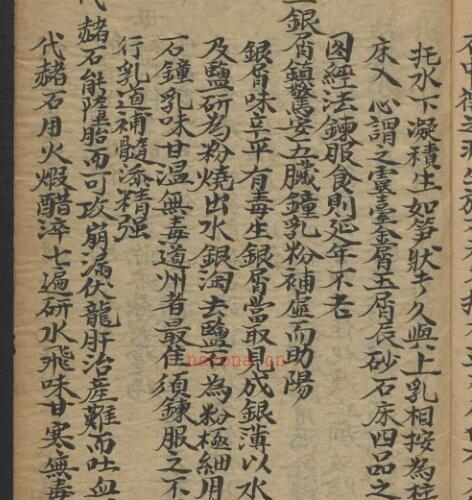 水下凝積生如笋狀才久與上乳相按為
床入心謂之靈臺金屑玉屑辰砂石床四品之
圖經法鍊服食則延年不老
銀屑鎮驚安五臟鐘乳粉補虛而助陽
銀屑味辛平有毒生銀屑當取見成銀薄以水
及鹽研為粉燒出水銀淘去鹽石為粉極細用
石鐘乳味甘溫無毒道州者最佳須鍊服之不
行乳道補髓添精強
代赭石能墮胎而可攻崩漏伏龍肝治産難而吐血
代赭石用火煆醋淬七遍研水飛味甘寒無毒